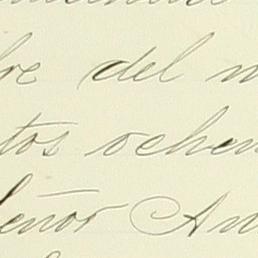 re del m
tos ochen
eñor An